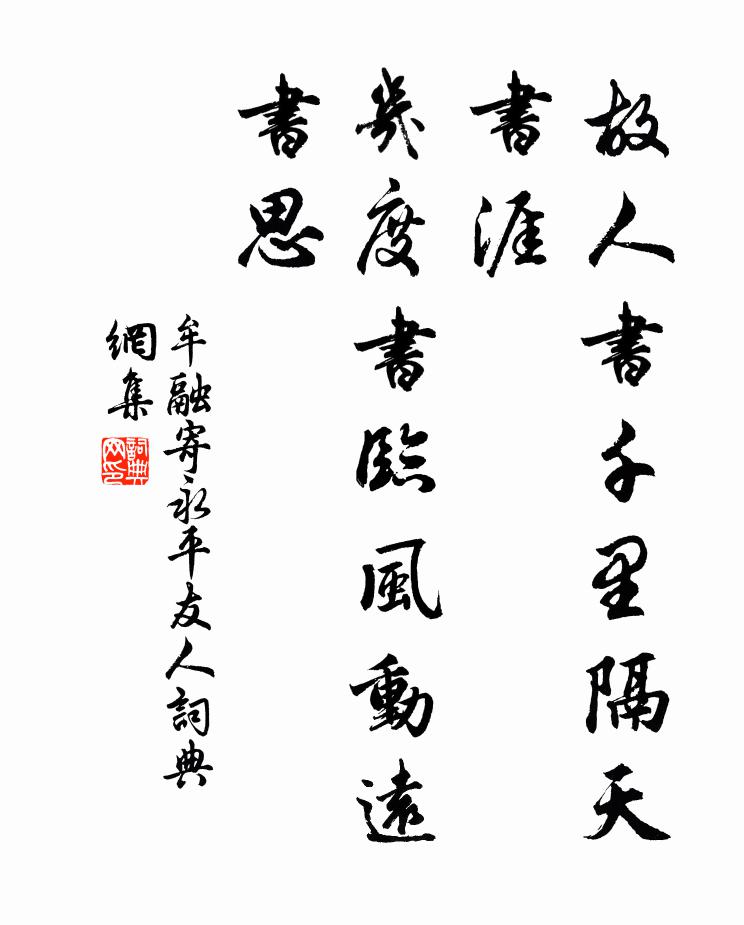 故人書千里隔天
書涯
幾度書臨風動遠
書思
牟融寄永平友人詞典
網集
詞典
网印